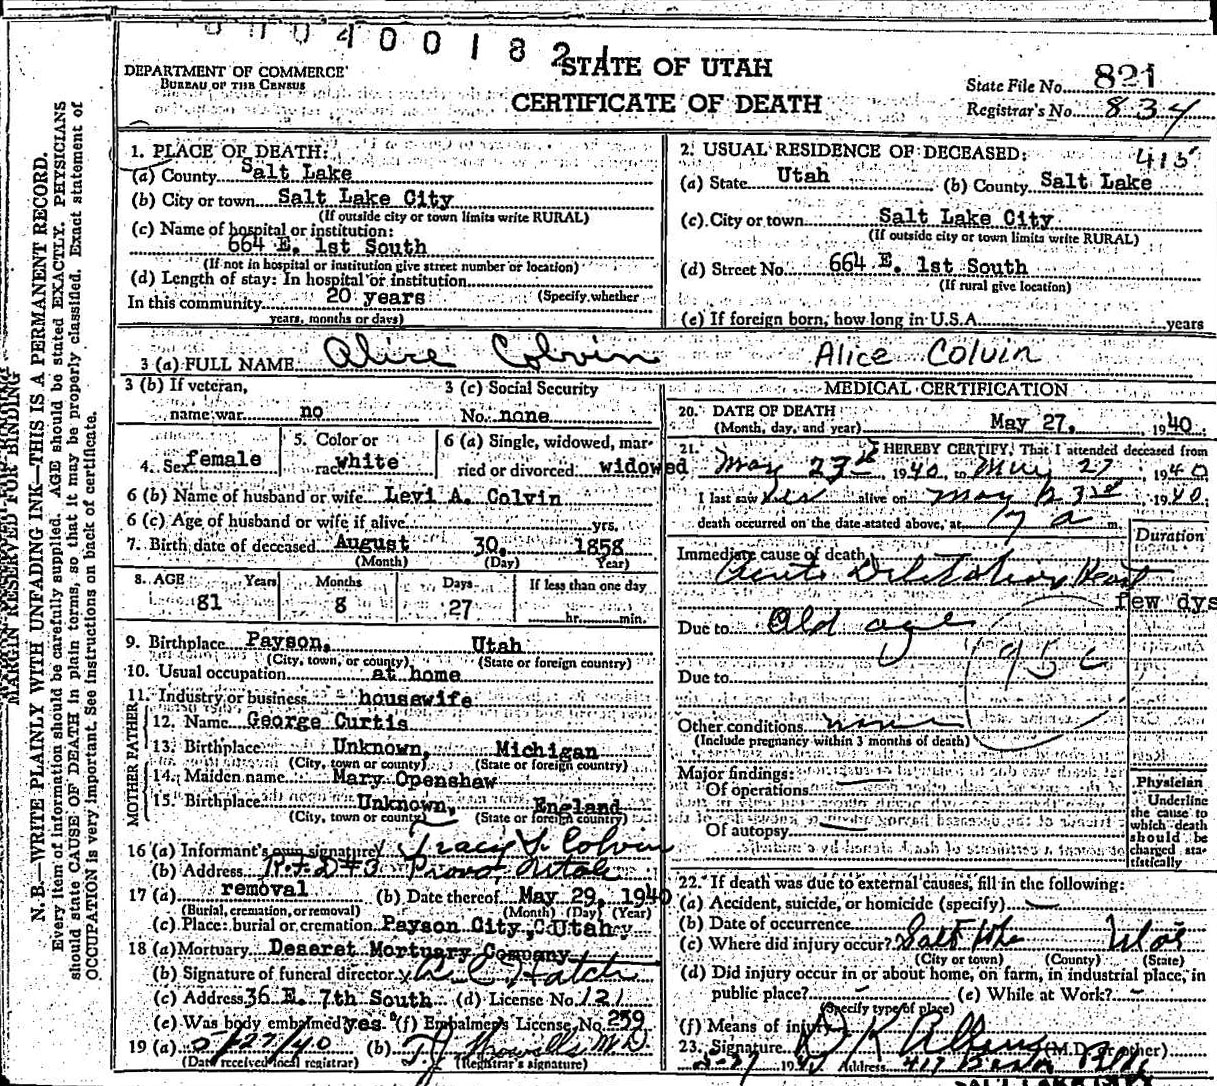 0400182
STATE OF UTAH
CERTIFICATE OF DEATH
DEPARTMENT OF COMMERCE
BUREAU OF THE CENSUS
State File No. 821
Registrar's No. 834
MARGIN RESERVED FOR BINDING
N. B.—WRITE PLAINLY WITH UNFADING INK—THIS IS A PERMANENT RECORD.
Every item of information should be carefully supplied. AGE should be stated EXACTLY. PHYSICIANS
should state CAUSE OF DEATH in plain terms, so that it may be properly classified. Exact statement of
OCCUPATION is very important. See instructions on back of certificate.
1. PLACE OF DEATH:
(a) County Salt Lake
(b) City or town Salt Lake City
(If outside city or town limits write RURAL)
(c) Name of hospital or institution:
664 E. 1st South
(If not in hospital or institution give street number or location)
(d) Length of stay: In hospital or institution
In this community 20 years (Specify whether
years, months or days)
2. USUAL RESIDENCE OF DECEASED: 415
(a) State Utah (b) County Salt Lake
(c) City or town Salt Lake City
(If outside city or town limits write RURAL)
(d) Street No. 664 E. 1st South
(If rural give location)
(e) If foreign born, how long in U.S.A. years
3 (a) FULL NAME Alice Colvin Alice Colvin
3 (b) If veteran, 3 (c) Social Security
name war no No. none
4. Sex female 5. Color or race white 6 (a) Single, widowed, married or divorced widowed
6 (b) Name of husband or wife Levi A. Colvin
6 (c) Age of husband or wife if alive yrs.
7. Birth date of deceased August 30, 1858
(Month) (Day) Year)
8. AGE Years Months Days If less than one day
81 8 27 hr. min.
9. Birthplace Payson, Utah
(City, town, or county) (State or foreign country)
10. Usual occupation at home
11. Industry or business housewife
FATHER
12. Name George Curtis
13. Birthplace Unknown, Michigan
(City, town or county) (State or foreign country)
MOTHER
14. Maiden name Mary Openshaw
15. Birthplace Unknown, England
(City, town or county) (State or foreign country)
16 (a) Informant's own signature Tracy Y. Colvin
(b) Address R.F.D #3 Provo Utah
17 (a) removal (b) Date thereof May 29, 1940
(Burial, cremation, or removal) (Month) (Day) (Year)
(c) Place: burial or cremation Payson City, Utah
18 (a) Mortuary Deseret Mortuary Company
(b) Signature of funeral director Hatch
(c) Address 36 E. 7th South (d) License No. 121
(e) Was body embalmed yes (f) Embalmer's License No. 259
19 (a) 5/27/40 (b) T J Howells M D
(Date received local registrar) (Registrar's signature)
MEDICAL CERTIFICATION
20. DATE OF DEATH
(Month, day, and year) May 27, 1940
21. I HEREBY CERTIFY, That I attended deceased from
May 23rd 1940, to May 27 1940
I last saw her alive on May 23rd 1940
death occurred on the date stated above, at 7 a m.
Duration
Immediate cause of death
Acute Dilatation Heart
few dys
Due to Old age
Due to 95c
Other conditions none
(Include pregnancy within 3 months of death)
Major findings:
Of operations
Of autopsy
Physician
Underline
the cause to
which death
should be
charged statistically
22. If death was due to external causes, fill in the following:
(a) Accident, suicide, or homicide (specify)
(b) Date of occurrence
(c) Where did injury occur? Salt Lake Utah
(City or town) (County) (State)
(d) Did injury occur in or about home, on farm, in industrial place, in
public place? (e) While at Work?
(Specify type of place)
(f) Means of injury
23. Signature (M.D. or other)
5-27 1940 Address